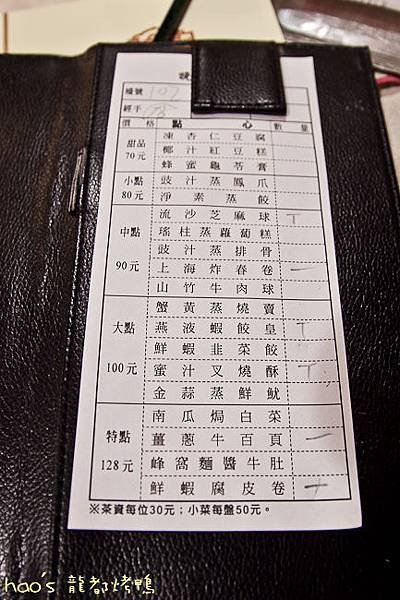 檯號 107
經手
價格 點心 數量
甜品 70元
凍杏仁豆腐
椰汁紅豆糕
蜂蜜龜苓膏
小點 80元
豉汁蒸鳳爪
淨素蒸餃
中點 90元
流沙芝麻球 T
瑤柱蒸蘿蔔糕
豉汁蒸排骨
上海炸春卷 一
山竹牛肉球
大點 100元
蟹黃蒸燒賣
燕液蝦餃皇 T
鮮蝦韭菜餃
蜜汁叉燒酥 T
金蒜蒸鮮魷
特點 128元
南瓜焗白菜
薑蔥牛百頁 一
蜂窩麵醬牛肚
鮮蝦腐皮卷
※茶資每位30元；小菜每盤50元。
hao's 龍都烤鴨